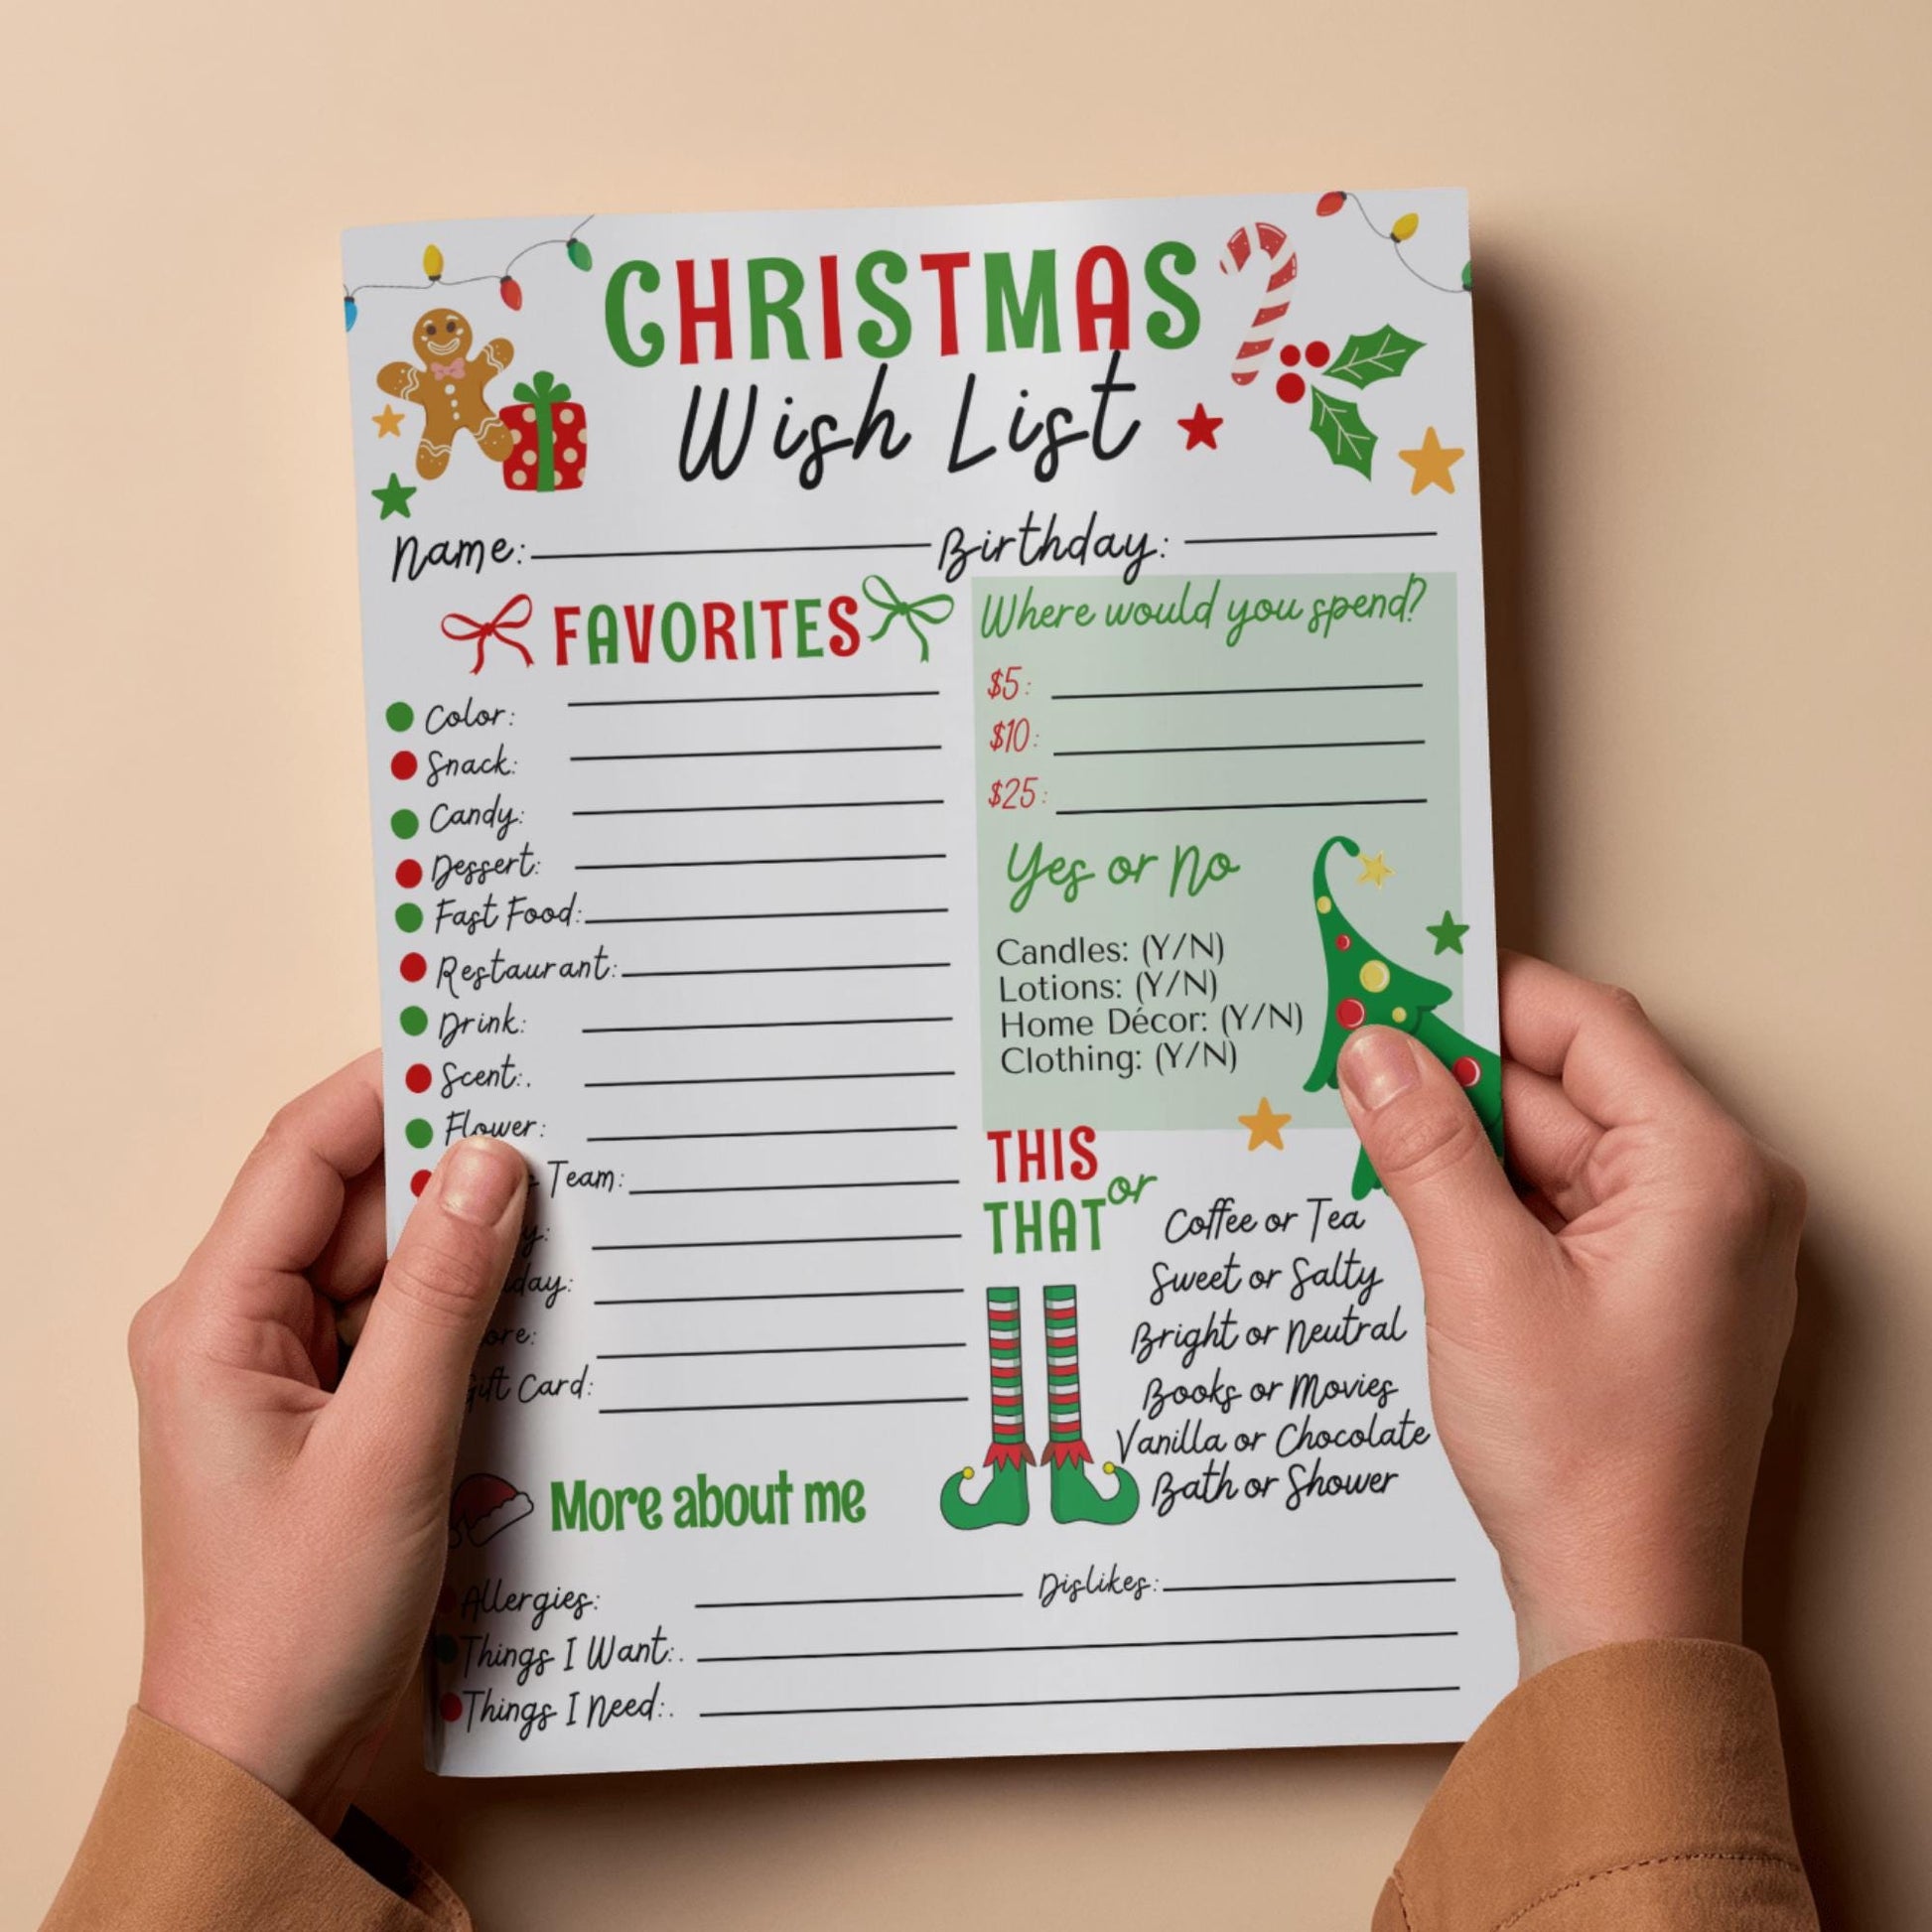 CHRISTMAS
Wish List
Name: Birthday:
FAVORITES
Color:
Snack:
Candy:
Dessert:
Fast Food:
Restaurant:
Drink:
Scent:.
Flower:
Team:
Gift Card:
Where would you spend?
$5:
$10:
$25:
Yes or No
Candles: (Y/N)
Lotions: (Y/N)
Home Décor: (Y/N)
Clothing: (Y/N)
THIS
or
THAT
Coffee or Tea
Sweet or Salty
Bright or Neutral
Books or Movies
Vanilla or Chocolate
Bath or Shower
More about me
Allergies: Dislikes:
Things I Want:.
Things I Need:.